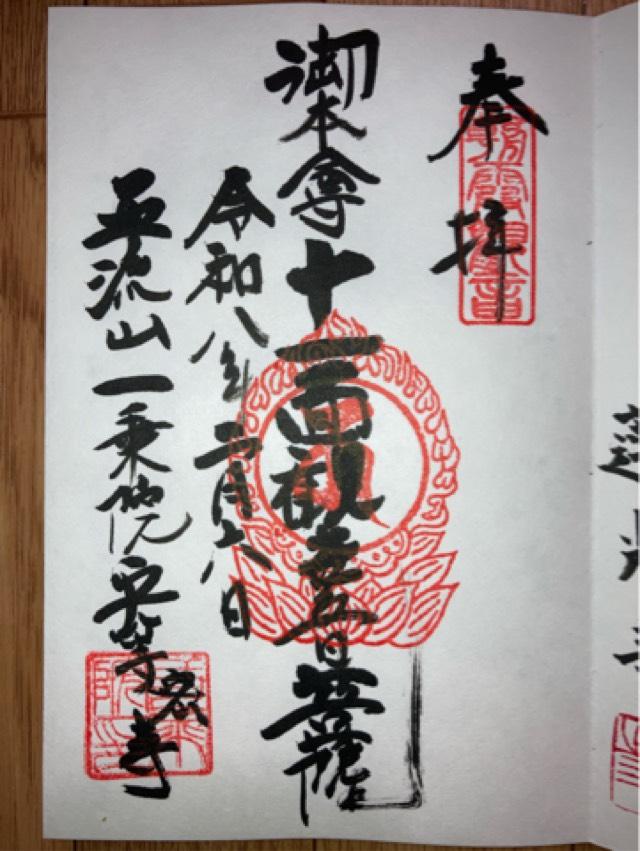 奉拝
御本尊十一面観音菩薩
令和八年二月六日
流山一乗院寺
観音